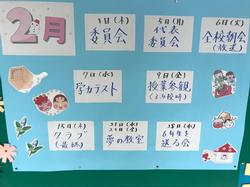 2月
1日(木)
委員会
5日(月)
代表
委員会
6日(火)
全校朝会
(放送)
7日(水)
学力テスト
9日(金)
授業参観
(2.4校時)
15日(木)
クラブ
(最終)
21日(水)
夢の教室
28日(水)
6年生を
送る会